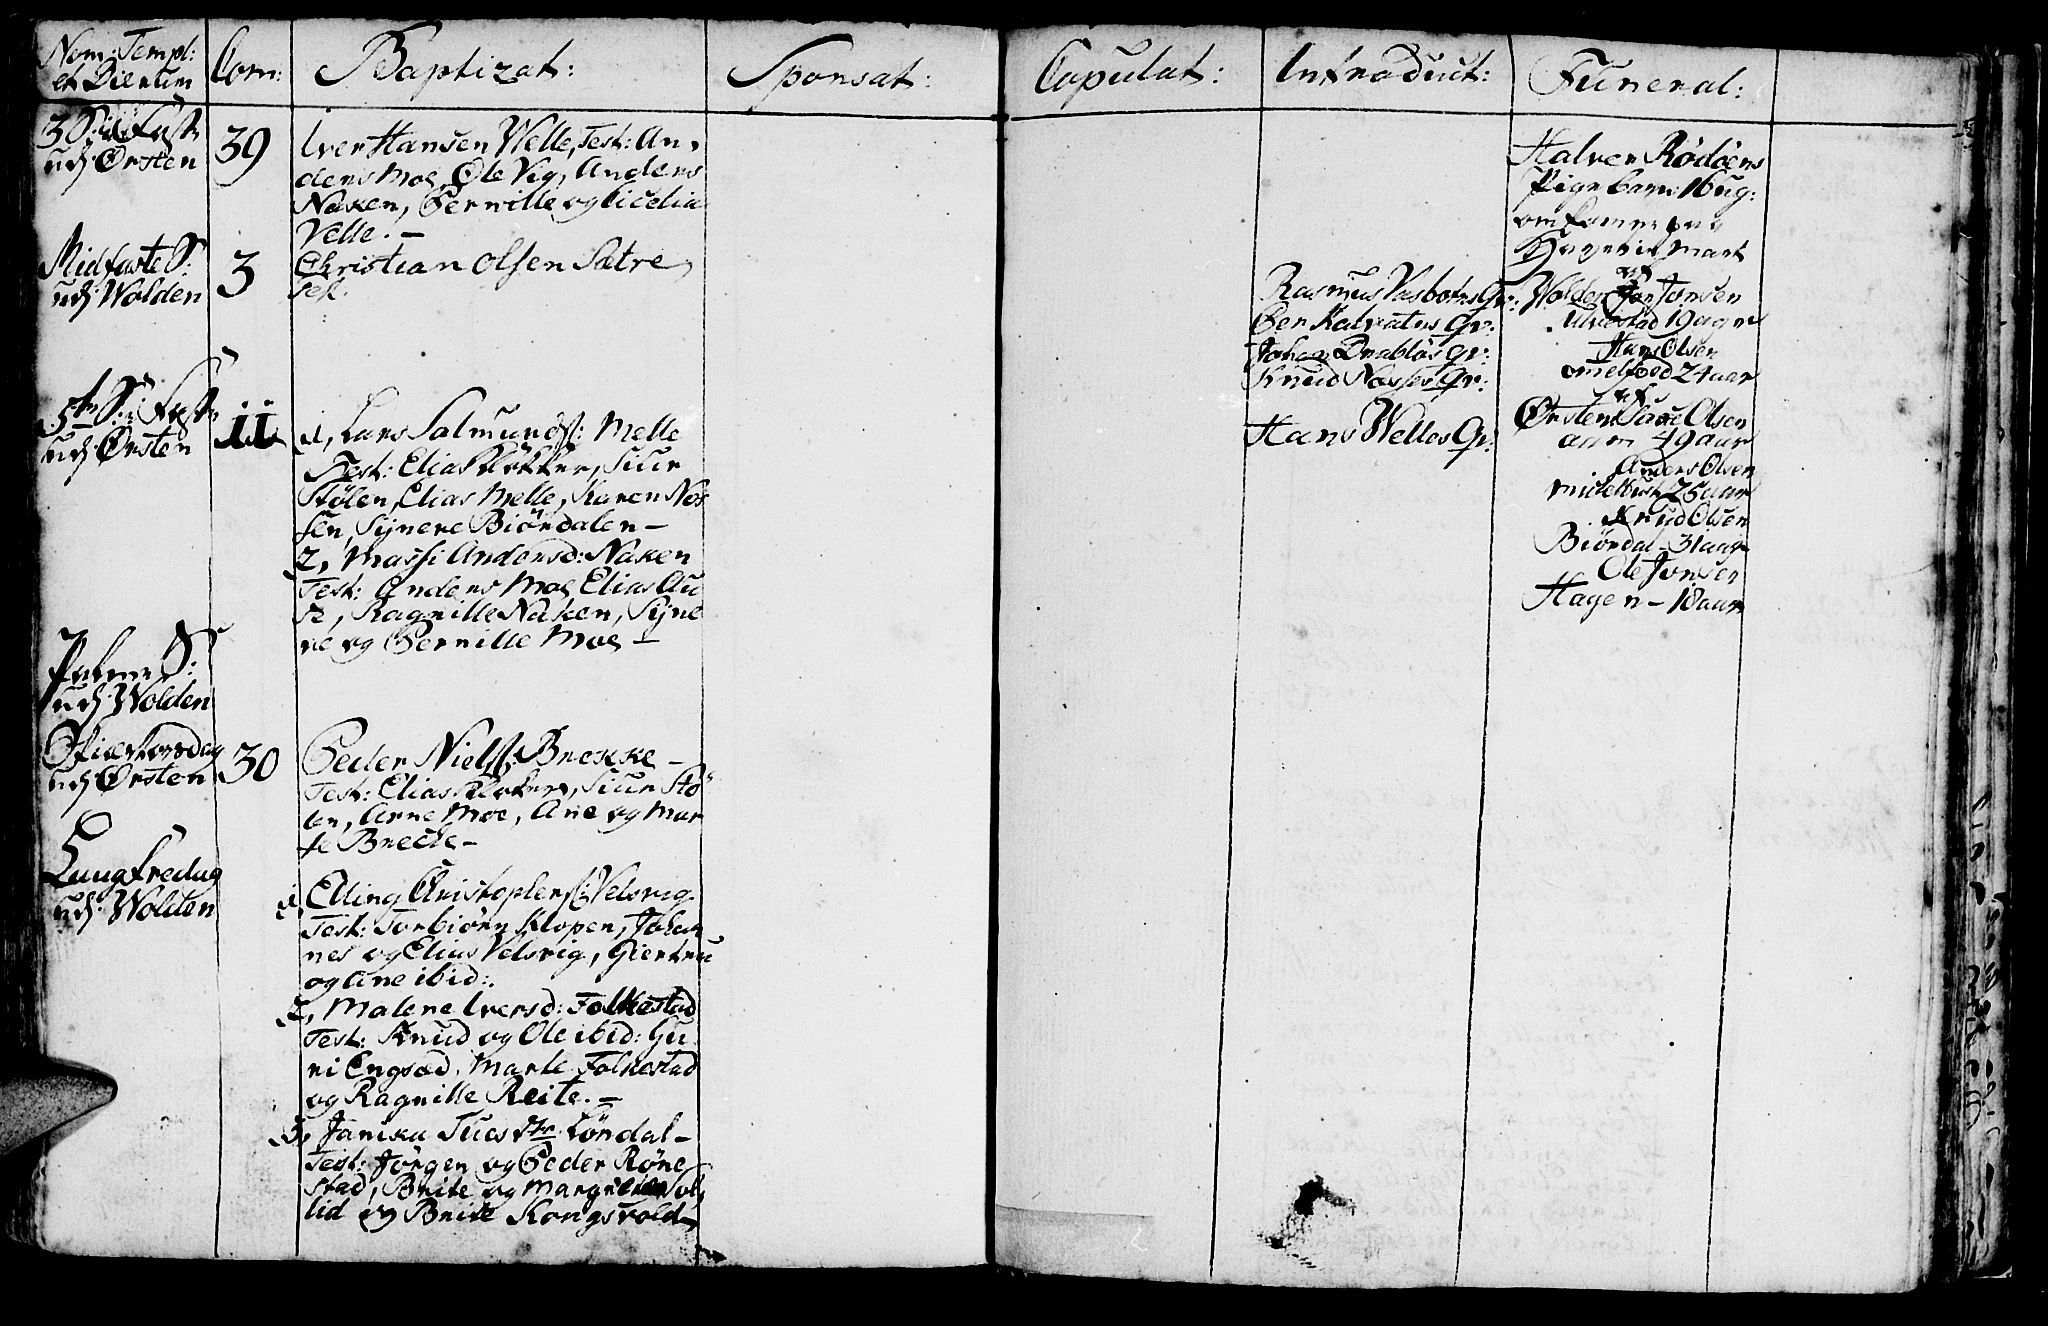 Nom: Templ:
et Dierum
Com:
Baptizat:
Sponsat:
Copulat:
Introduct:
Funeral:
3 S: i Fast
udj Ørsten
39
Iver Hansen Welle, Test: An,
ders Moe, Ole Vig, Anders
Naken, Pernille og Cicelia
Velle. —
Midfaste S:
udj Wolden
3
Christian Olsen Sætre,
5te S: i Fast
udj Ørsten
11
1, Lars Salmunds: Melle
Test: Elias Klokker, Siur
Stølen, Elias Melle, Karen Nos
sen, Synere Biørdalen —
2, Massi Andersd: Naken
Test: Anders Moe, Elias Au
re, Ragnille Naken, Syne
re og Pernille Moe —
Palme S:
udj Wolden
Skiærtorsdag
udj Ørsten
30
Peder Niels: Brekke —
Test: Elias Klokker, Siur Stö
len, Arne Moe, Ane og Mar
te Brecke —
Langfredag
udj Wolden
1, Elling Christophers: Velsvig
Test: Torbiørn Klopen, Johan
nes og Elias Velsvig, Giertru
og Ane ibid:
2, Malene Iversd: Folkestad
Test: Knud og Ole ibid: Gu
ri Engsæd, Marte Folkestad
og Ragnille Reite. —
3, Janika Tues dtr Løndal —
Test: Jørgen og Peder Röne
stad, Brite og Margrete
lid og Brite Kongsvold
Rasmus Vasbotns Qv:
Per Kalvatns Qv:
Johan Drabløs Qv:
Knud Nosses Qv:
Hans Welles Qv:
Halver Rødøens
Pigebarn 16 ug:
Wolden Jon Jonsen
Ulvestad 19 ager
Hans Olsen
24 aar
Ørsten Olsen
49 aar
Anders Olsen
Midelbust 25 aar
Knud Olsen
Biørdal — 31 aar
Ole Jonsen
Hagen — 18 aar